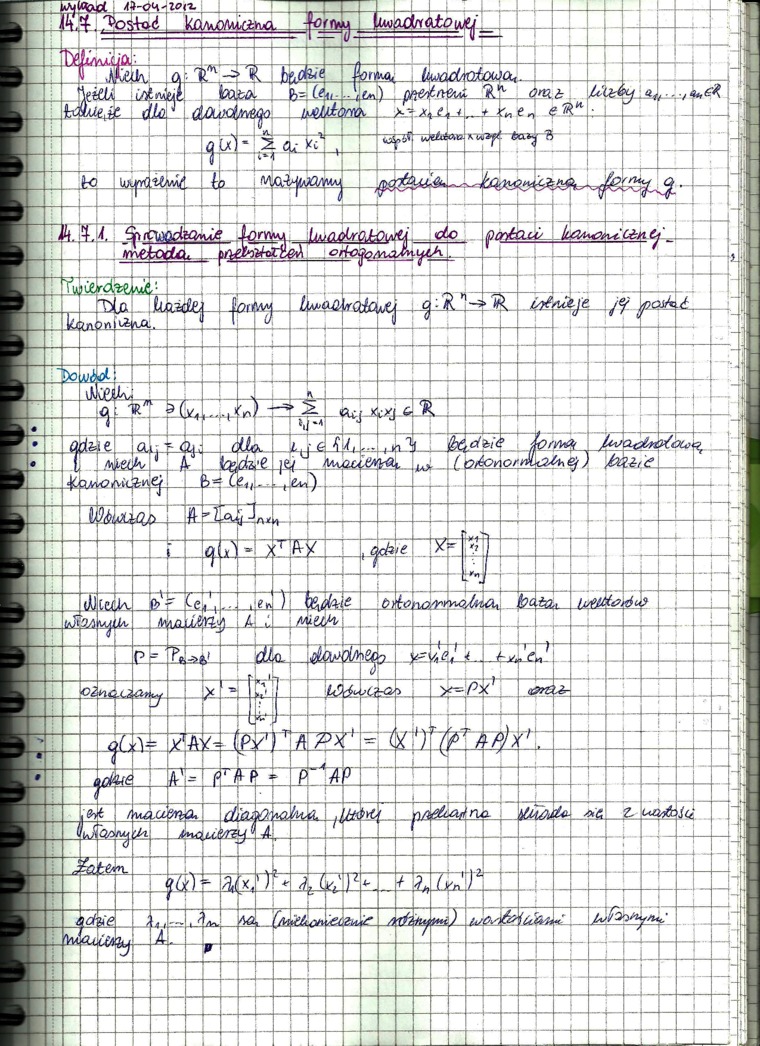 wykład 17-04-2012
14.7. Postać kanoniczna formy kwadratowej
Definicja:
Niech g: ℝⁿ → ℝ będzie formą kwadratową.
Jeżeli istnieje baza B=(e₁,...,eₙ) przestrzeni ℝⁿ oraz liczby a₁,...,aₙ∈ℝ
takie, że dla dowolnego wektora x=x₁e₁+...+xₙeₙ ∈ℝⁿ.
g(x) = Σᵢ₌₁ⁿ aᵢ xᵢ², współ. wektora x wzgl. bazy B
to wyrażenie to nazywamy postacią kanoniczną formy g.
14.7.1. Sprowadzanie formy kwadratowej do postaci kanonicznej
metodą przekształceń ortogonalnych.
Twierdzenie:
Dla każdej formy kwadratowej g: ℝⁿ → ℝ istnieje jej postać
kanoniczna.
Dowód:
Niech:
g: ℝⁿ ∋(x₁,...,xₙ) → Σᵢ,ⱼ₌₁ⁿ aᵢⱼ xᵢxⱼ ∈ ℝ
gdzie aᵢⱼ = aⱼᵢ dla i,j ∈ {1,...,n} będzie formą kwadratową
i niech A będzie jej macierzą w (ortonormalnej) bazie
kanonicznej B=(e₁,...,eₙ)
Wówczas A=[aᵢⱼ]ₙₓₙ
i g(x) = XᵀAX , gdzie X= [x₁ x₂ ⋮ xₙ]
Niech B'=(e₁',...,eₙ') będzie ortonormalną bazą wektorów
własnych macierzy A i niech
P = P_B→B' dla dowolnego x=x₁'e₁'+...+xₙ'eₙ'
oznaczamy X' = [x₁' x₂' ⋮ xₙ'] Wówczas X=PX' oraz
g(x) = XᵀAX = (PX')ᵀ A PX' = (X')ᵀ (Pᵀ AP)X'.
gdzie A' = PᵀAP = P⁻¹AP
jest macierzą diagonalną, której przekątna składa się z wartości
własnych macierzy A.
Zatem
g(x) = λ₁(x₁')² + λ₂(x₂')² + ... + λₙ(xₙ')²
gdzie λ₁,...,λₙ są (niekoniecznie różnymi) wartościami własnymi
macierzy A.